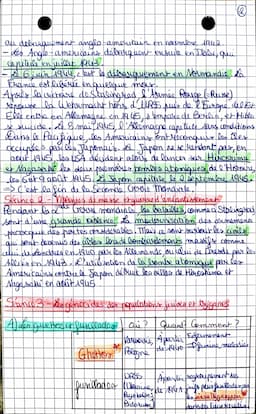 au débarquement anglo-américain en novembre 1942
- Les Anglo-américains débarquent ensuite en Italie, qui
capitule en juillet 1943.
- Le 6 juin 1944, c'est le débarquement en Normandie. La
France est libérée en quelques mois.
Après la victoire de Stalingrad, l'Armée Rouge (Russe)
repousse la Wehrmacht hors d'URSS, puis de l'Europe de l'Est.
Elle entre en Allemagne en 1945, s'empare de Berlin, et Hitler
se suicide. Le 8 mai 1945, l'Allemagne capitule sans conditions
Dans le Pacifique, les Américains ont reconquis les îles
occupées par les Japonais. Le Japon ne se rendant pas, en
août 1945, les USA décident alors de lancer sur Hiroshima
et Nagasaki les deux premières bombes atomiques de l'Histoire,
les 6 et 9 août 1945. Le Japon capitule le 2 septembre 1945.
→ C'est la fin de la Seconde Guerre Mondiale.
Séance 2 - Violences de masse et
Pendant la 2e Guerre mondiale, les batailles comme Stalingrad
sont d'une grande violence. La
provoque des pertes considérables. Mais ce sont surtout les civils
qui sont devenus des cibles lors de bombardements massifs comme
de Londres en 1940 par les Allemands ou celui de Dresde par les
Alliés en 1945. L'utilisation de la bombe atomique par les
Américains contre le Japon détruit les villes de Hiroshima et
Nagasaki en août 1945.
Séance 3 - Le génocide des populations juives et tziganes
A) Les ghettos et fusillades
Qui ? Quand ? Comment ?
Ghettos
Pologne
de 1940
fusillades
URSS
(Ukraine,
À partir